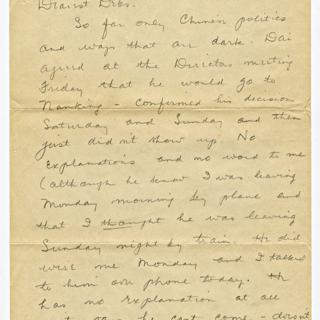 Dearest Debs.
So far only Chinese politics
and ways that are dark. Dai
agreed at the Directors meeting
Friday that he would go to
Nanking - confirmed his decision
Saturday and Sunday and then
just didn't show up. No
explanations and no word to me
(although he knew I was leaving
Monday morning by plane and
that I thought he was leaving
Sunday night by train. He did
wire me Monday and I talked
to him on phone today. He
has no explanation at all
he can't come - doesn't